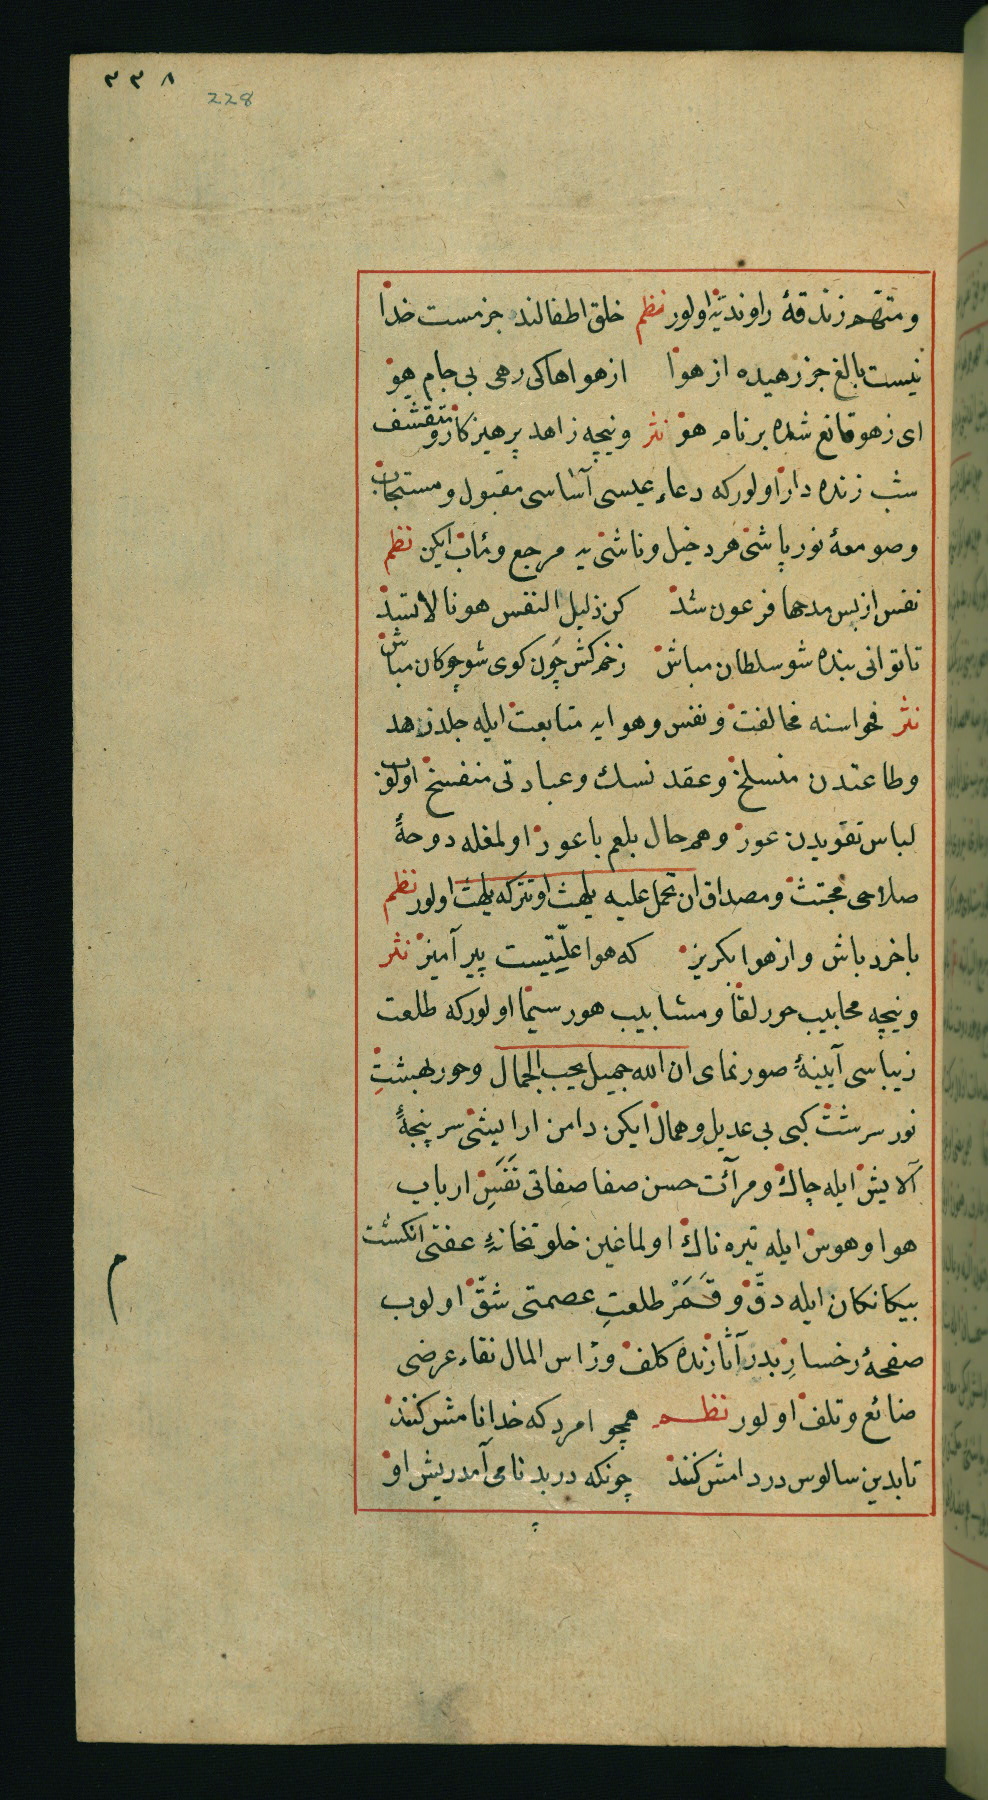 ٢٢٨
228
و متّهم زندقۀ راوندیّه اولور نظم خلق اطفالند جز مست خدا
نیست بالغ جز رهیده از هوا از هواها کی رهی بی جام هو
ای ز هو قانع شده بر نام هو نثر و نیچه زاهد پرهیزکار و متقشف
شب زنده دار اولور که دعاء عیسی آساسی مقبول و مستجاب
و صومعۀ نور پاشی هر دخیل و ناشئ یه مرجع و مئاب ایکن نظم
نفس از بس مدحها فرعون شد کن ذلیل النفس هونا لا تسد
تا توانی بنده شو سلطان مباش زخم کش چون کوی شو چوکان مباش
نثر فحواسنه مخالفت و نفس و هوایه متابعت ایله جلد زهد
و طاعتدن منسلخ و عقد نسك و عبادتی منفسخ اولوب
لباس تقویدن عور و هم حال بلعم باعور اولمغله دوحۀ
صلاحی مجتث و مصداق ان تحمل علیه یلهث او تترکه یلهث اولور نظم
با خرد باش و از هوا بکریز که هوا علّتیست پیر آمیز نثر
و نیچه محابیب حور لقا و مشابیب هور سیما اولور که طلعت
زیباسی آیینۀ صور نمای ان الله جمیل یحب الجمال و حور بهشتِ
نور سرشت کبی بی عدیل و همال ایکن دامن ارایشی سر پنجۀ
آلایش ایله چاك و مرآت حسن صفا صفاتی نَفَسِ ارباب
هوا و هوس ایله تیره ناك اولماغین خلوتخانۀ عفتی انکشت
بیکانکان ایله دقّ و قَمَرْ طلعتِ عصمتی شقّ اولوب
صفحۀ رخسارِ بدر آثارنده کلف و رأس المال نقاء عرضی
ضائع و تلف اولور نظم همچو امرد که خدا نامش کنند
تا بدین سالوس در دامش کنند چونکه در بدنامی آمد ریش او
م